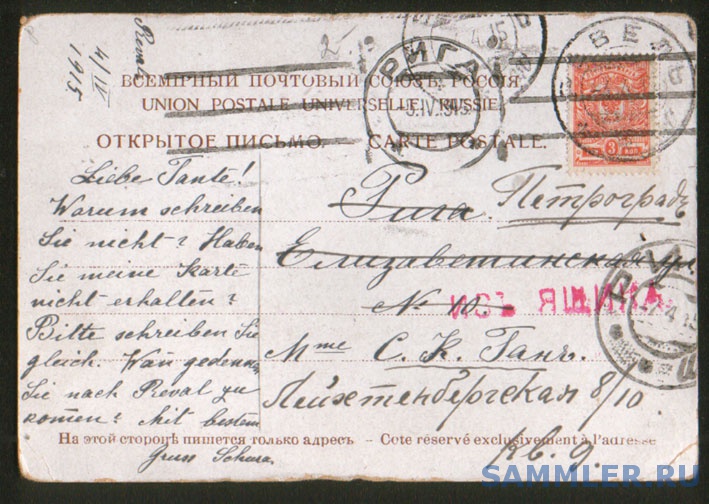 Reval
4/IV
1915
ВСЕМІРНЫЙ ПОЧТОВЫЙ СОЮЗЪ. РОССІЯ
UNION POSTALE UNIVERSELLE. RUSSIE
ОТКРЫТОЕ ПИСЬМО. — CARTE POSTALE.
РИГА
5.IV.915
РЕВЕЛЬ
3 КОП
Liebe Tante!
Warum schreiben
Sie nicht? Haben
Sie meine Karte
nicht erhalten?
Bitte schreiben Sie
gleich. Wan gedenken
Sie nach Reval zu
komen? Mit bestem
Gruss Schura.
Рига Петроградъ
Елизаветинская ул.
№ 10
ИЗЪ ЯЩИКА
Mme С. К. Ганъ.
Лейхтенбергская 8/10
кв. 9.
На этой сторонѣ пишется только адресъ — Cote réservé exclusivement à l'adresse
SAMMLER.RU